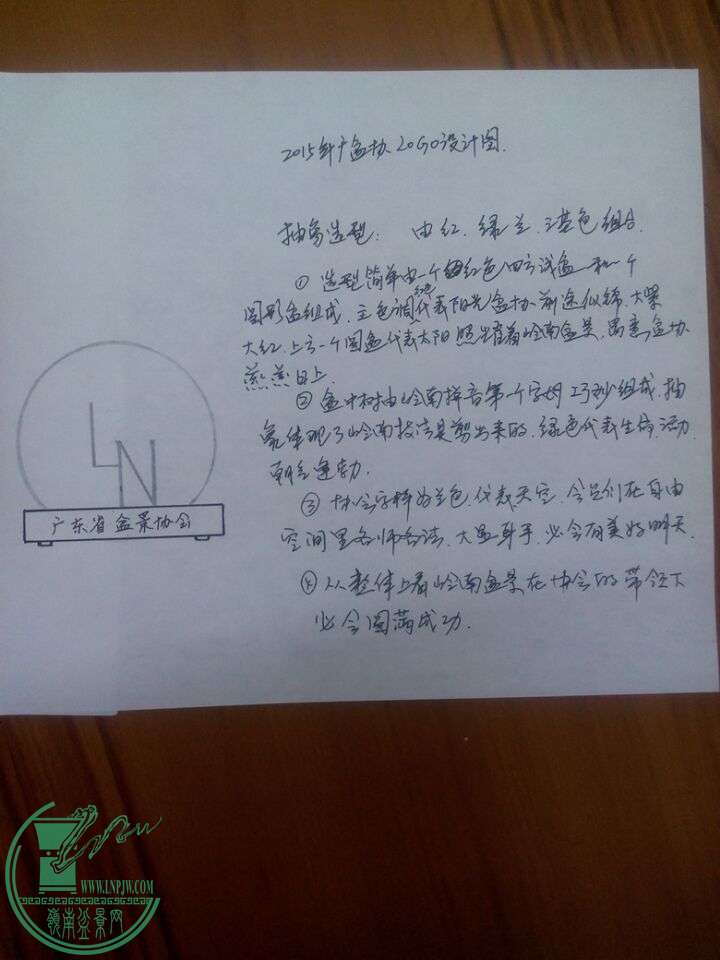 2015年广盆协LOGO设计图.
抽象造型: 由红.绿兰.三基色组合.
① 造型简单由一个红色四方浅盆和一个
圆形盆组成.主色调红色代表阳光盆协前途似锦.大
大红.上方一个圆盆代表太阳照耀着岭南盆景.寓意盆协
蒸蒸日上.
② 盆中树由岭南拼音第一个字母巧妙组成.抽
象体现了岭南技法是剪出来的.绿色代表生命.活力
③ 协会字样为兰色.代表天空.会员们在自由
空间里各师各法.大显身手.必会有美好明天.
④ 从整体上看岭南盆景在协会的带领下
必会圆满成功.
LN
广东省盆景协会
WWW.LNPJW.COM
嶺南盆景网